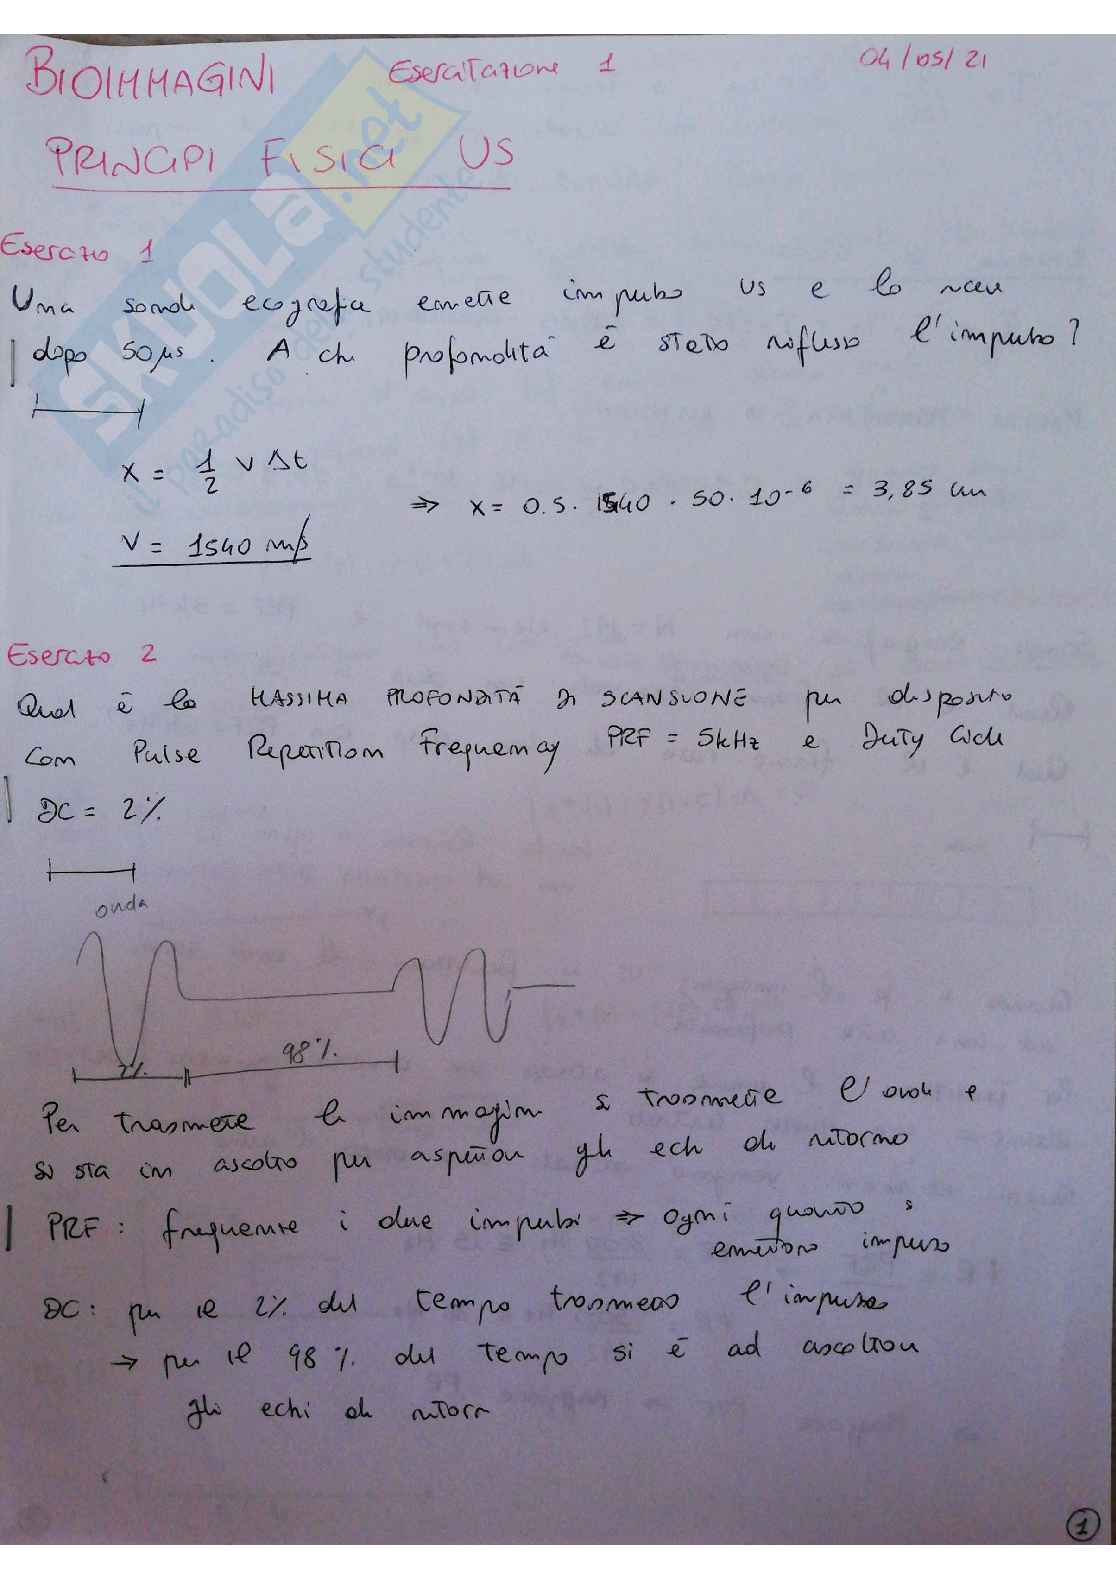 BIOIMMAGINI Esercitazione 1 04/05/21
PRINCIPI FISICI US
Esercizio 1
Una sonda ecografica emette impulso US e lo riceve
dopo 50 μs. A che profondità è stato riflesso l'impulso?
x = 1/2 v Δt
⇒ x = 0.5 · 1540 · 50 · 10^-6 = 3,85 cm
v = 1540 m/s
Esercizio 2
Qual è la MASSIMA PROFONDITÀ DI SCANSIONE per dispositivo
con Pulse Repetition Frequency PRF = 5kHz e Duty Cicle
DC = 2%
onda
2% 98%
Per trasmettere le immagini si trasmette l'onda e
si sta in ascolto per aspettare gli echi di ritorno
PRF: frequenza i due impulsi ⇒ ogni quanto si
emettono impulso
DC: per il 2% del tempo trasmetto l'impulso
→ per il 98% del tempo si è ad ascoltare
gli echi di ritorno
1
SKUOLA.net
il paradiso dello studente